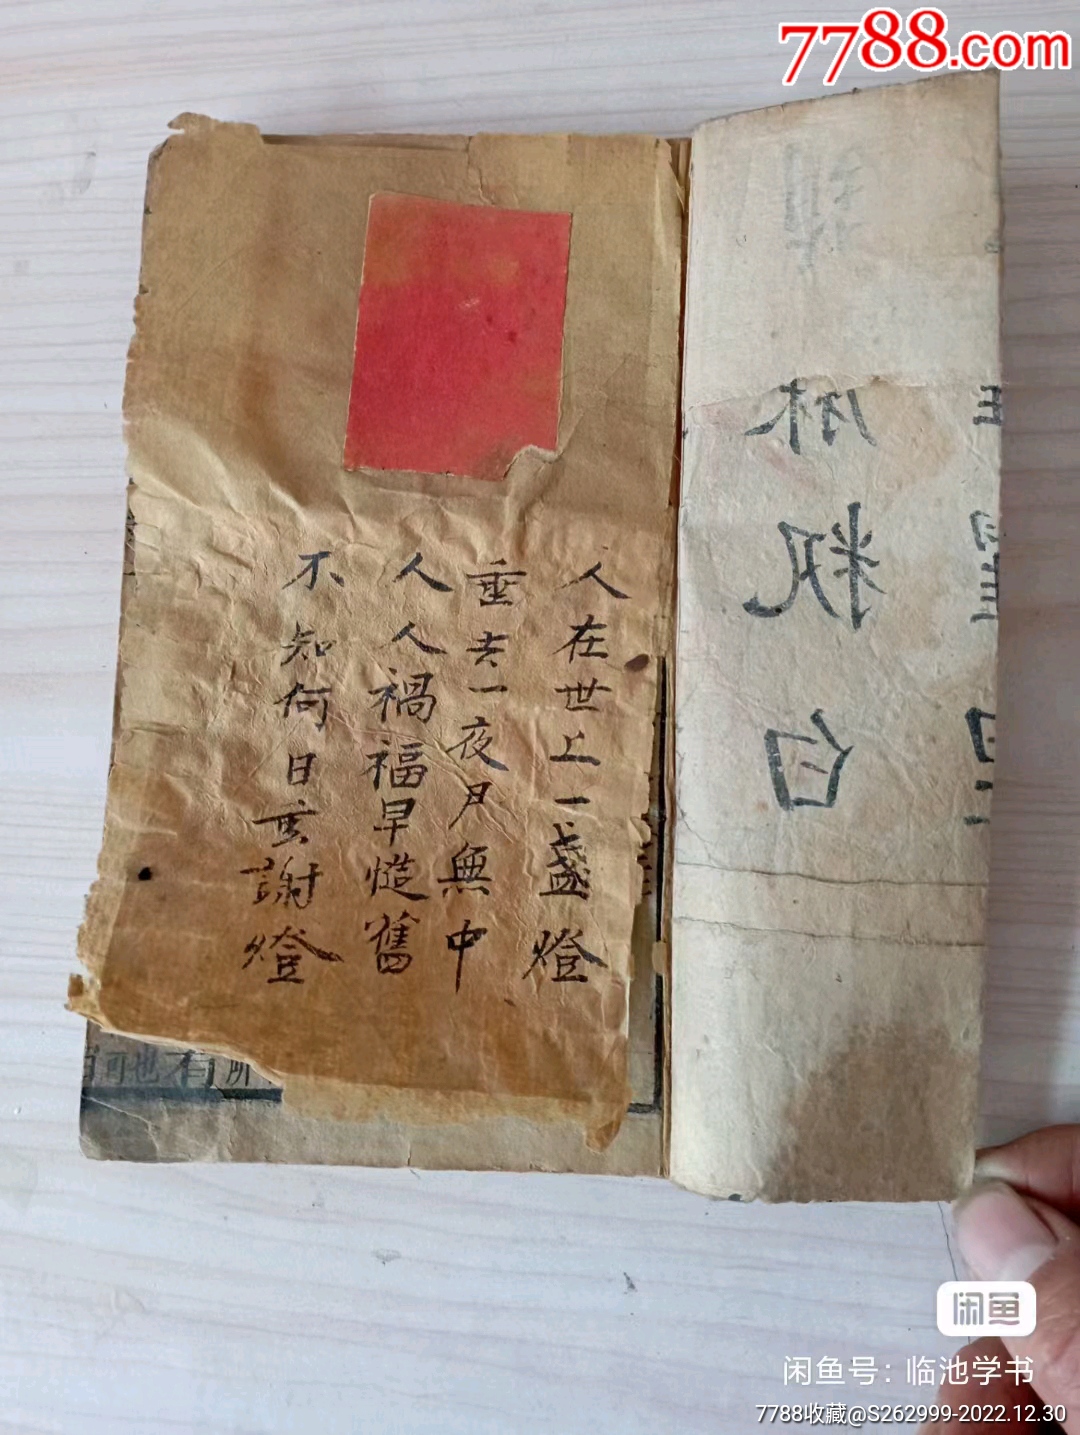 7788.com
人在世上一盏燈
重去一夜月無中
人人禍福早慥舊
不知何日亥謝燈
白
可也不
所
闲鱼
闲鱼号：临池学书
7788收藏@S262999-2022.12.30